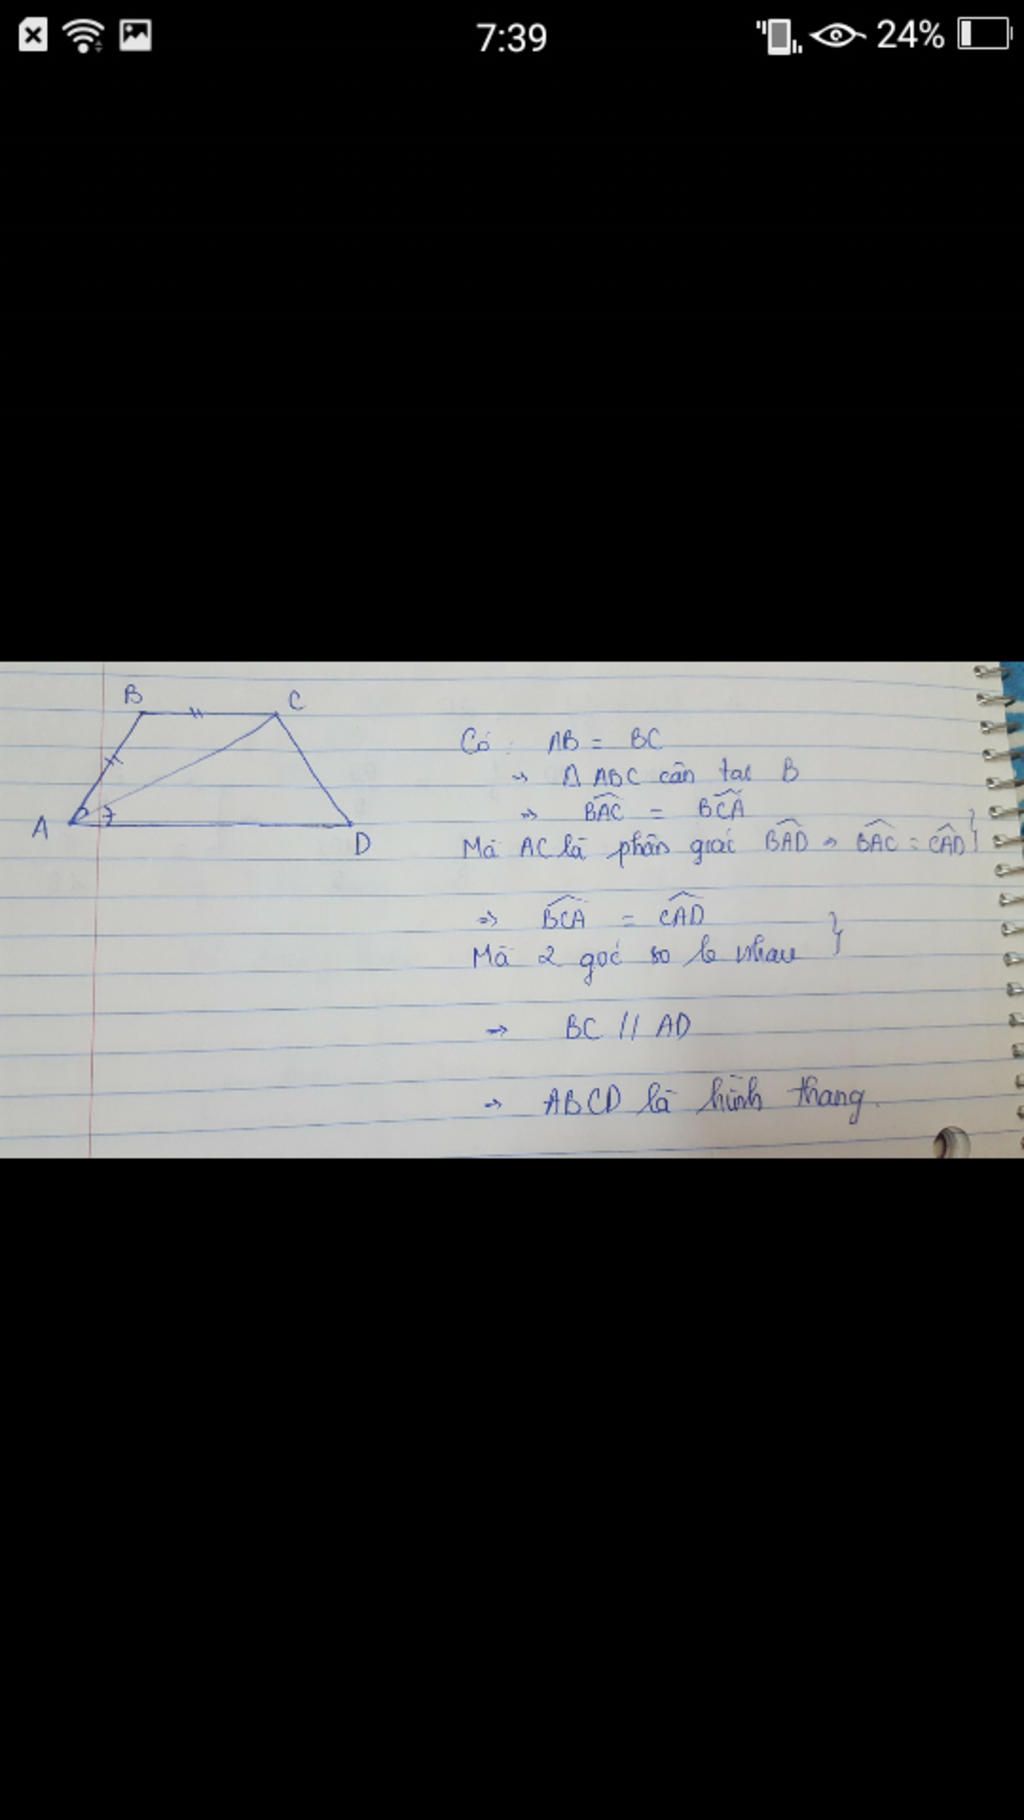 7:39
24%
B
C
A
D
Có : AB = BC
→ Δ ABC cân tại B
⇒ BAC = BCA
Mà AC là phân giác BAD ⇒ BAC = CAD }
⇒ BCA = CAD
Mà 2 góc so le nhau }
⇒ BC // AD
→ ABCD là hình thang.